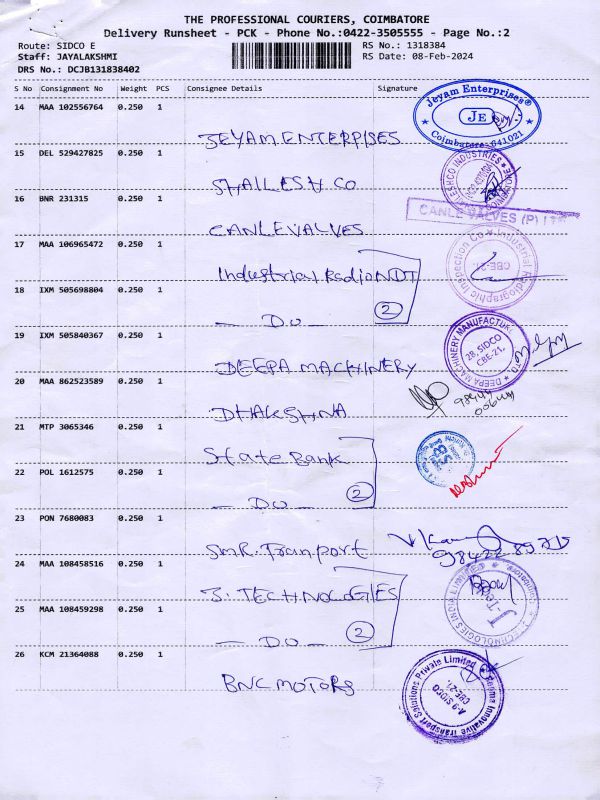 THE PROFESSIONAL COURIERS, COIMBATORE
Delivery Runsheet - PCK - Phone No.:0422-3505555 - Page No.:2
Route: SIDCO E
RS No.: 1318384
Staff: JAYALAKSHMI
RS Date: 08-Feb-2024
DRS No.: DCJB131838402
S No Consignment No Weight PCS Consignee Details Signature
14 MAA 102556764 0.250 1
Jeyam Enterprises®
JE
Coimbatore-641021
JEYAM ENTERPRISES
15 DEL 529427825 0.250 1
SHAILESH CO
16 BNR 231315 0.250 1
CANLE VALVES (P) LTD
CANLEVALVES
17 MAA 106965472 0.250 1
Industrial Radio NDT
Industrial Radiographic Inspection Co
CBE-21.
18 IXM 505698804 0.250 1
2
- DO -
19 IXM 505840367 0.250 1
DEEPA MACHINERY MANUFACTUR
28, SIDCO
CBE-21.
DEEPA MACHINERY
20 MAA 862523589 0.250 1
DHAKSHNA
21 MTP 3065346 0.250 1
State Bank
22 POL 1612575 0.250 1
2
- DO -
23 PON 7680083 0.250 1
SMR. Tranport
24 MAA 108458516 0.250 1
J. TECHNOLOGIES
J-TECHNOLOGIES INDIA LIMITED
25 MAA 108459298 0.250 1
2
- DO -
26 KCM 21364088 0.250 1
Innovative Transport Solutions Private Limited
A-9 SIDCO
CBE-21.
BNC MOTORS